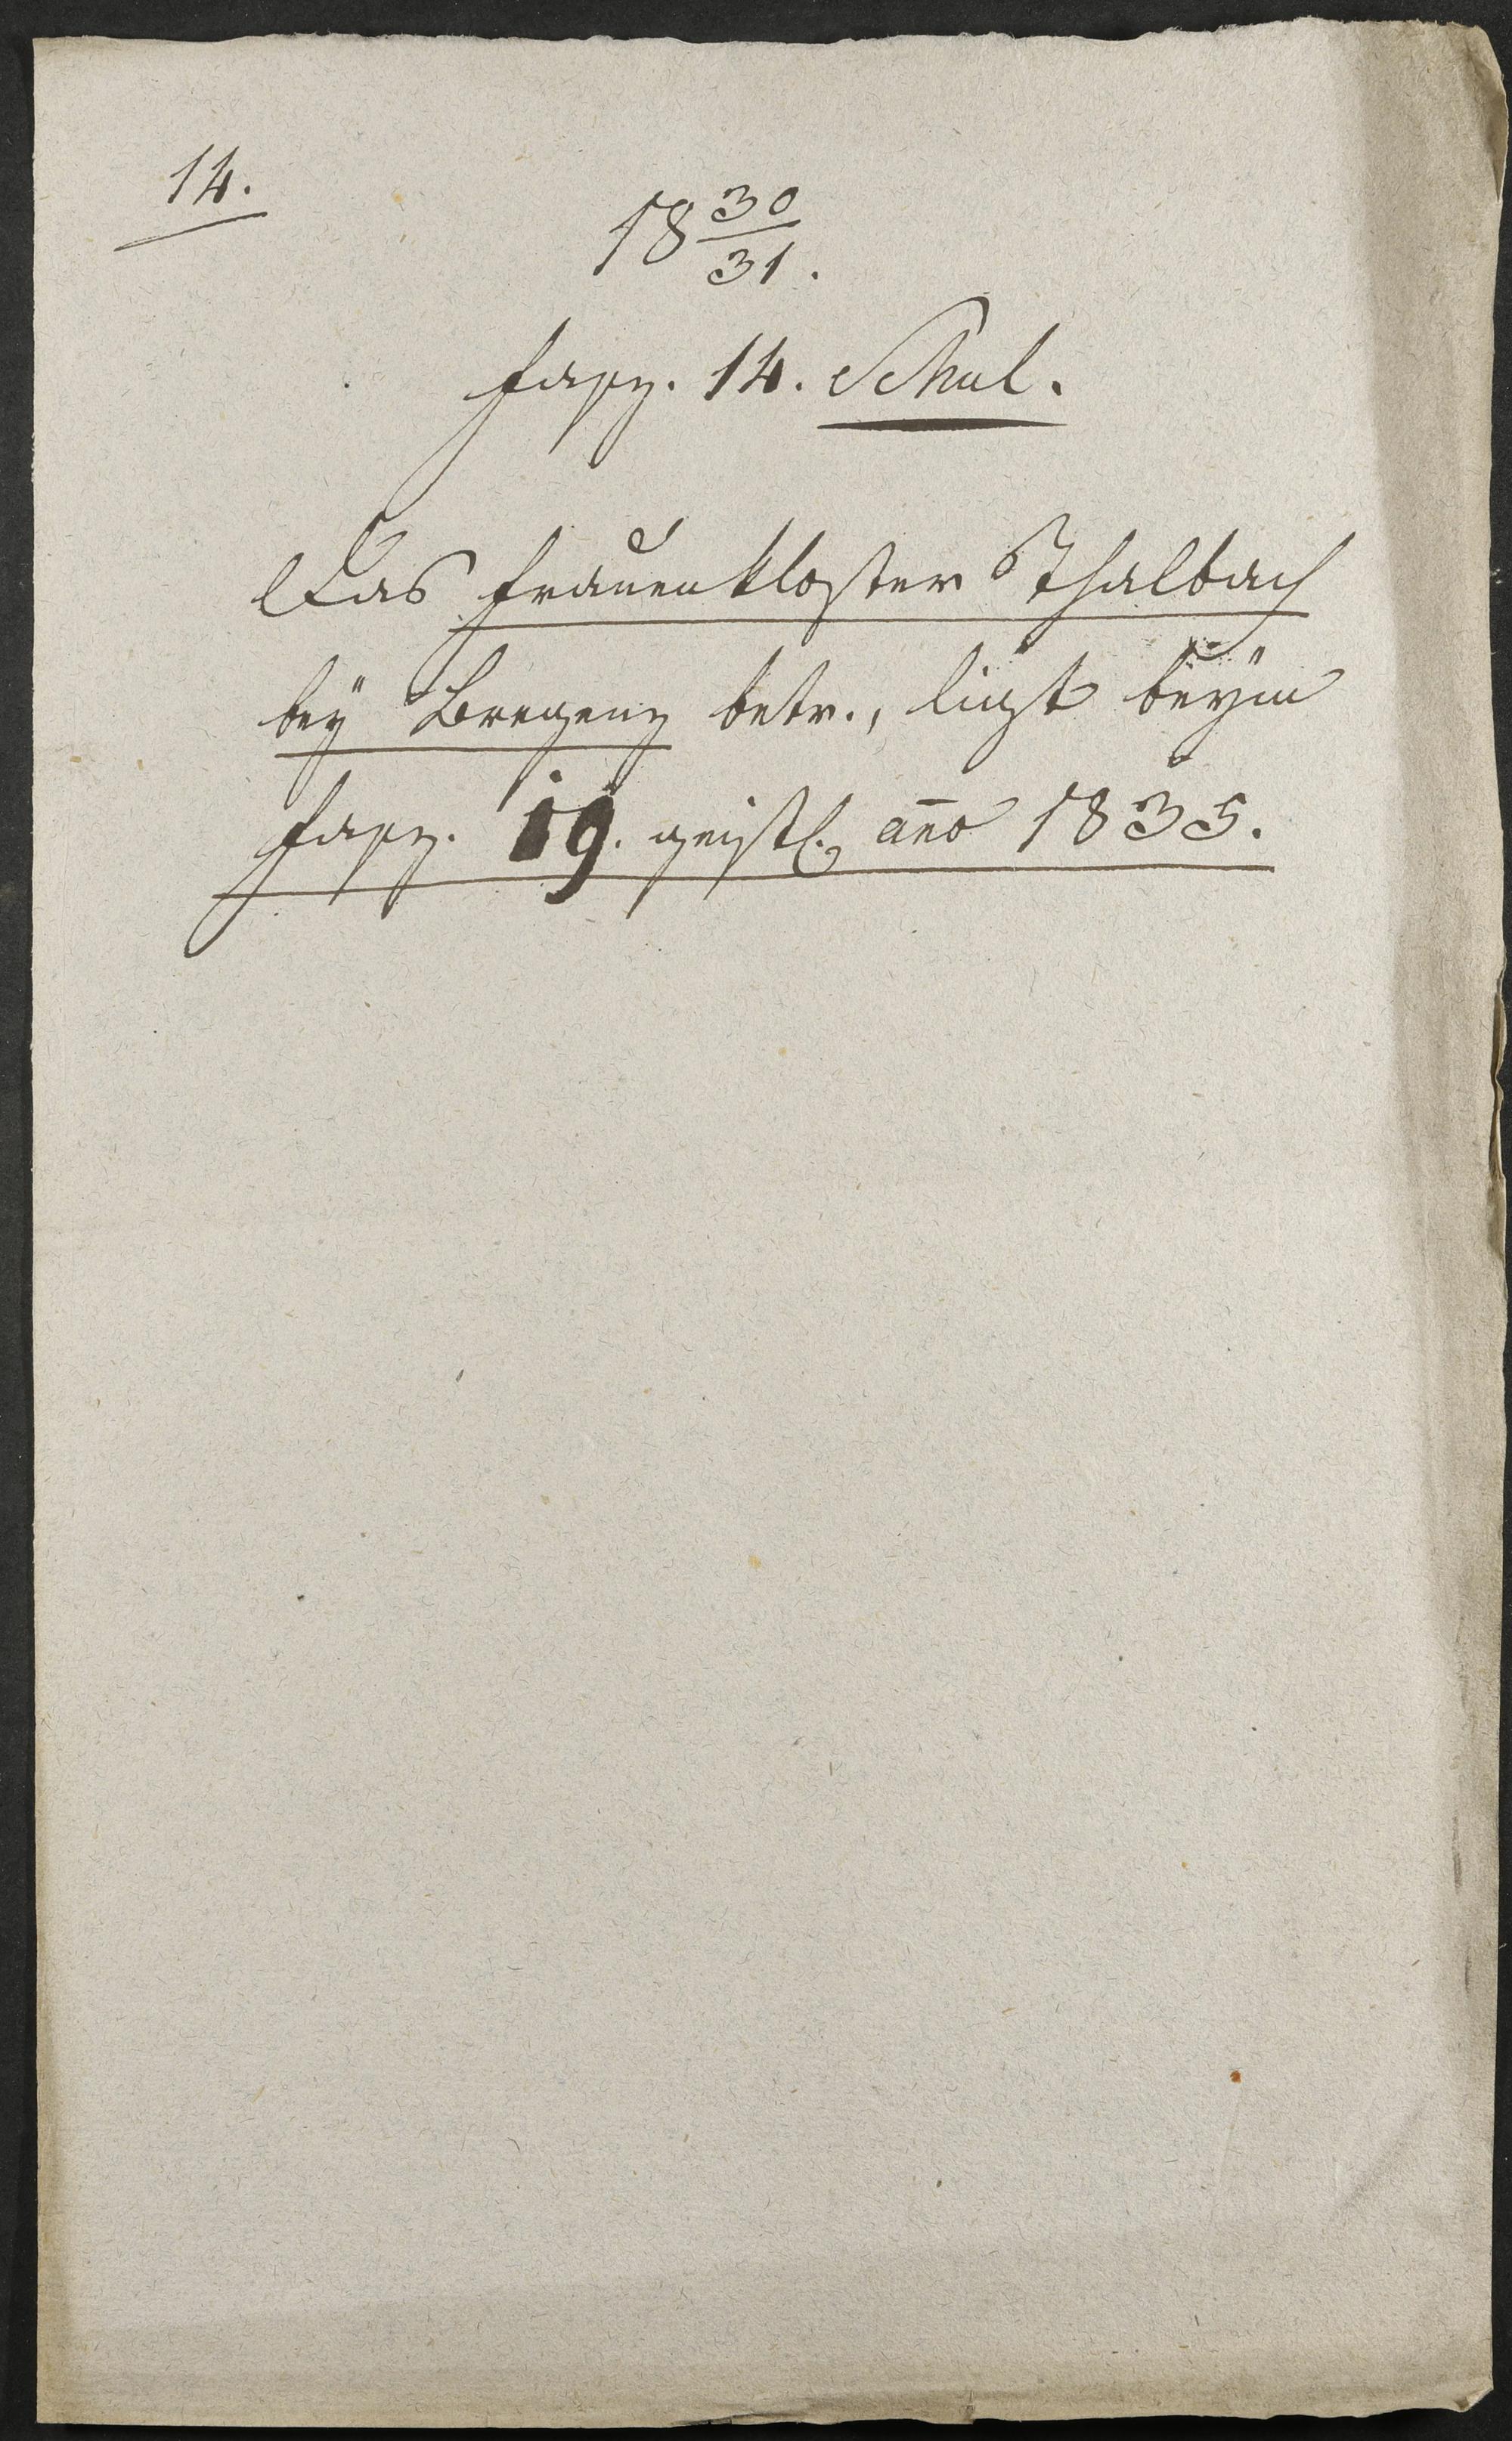 14.
18 30/31.
Fasz. 14. Schul.
Das Frauenkloster Thalbach
bëy Bregenz betr., liegt beÿm
Fasz. 19. geistl. año 1835.